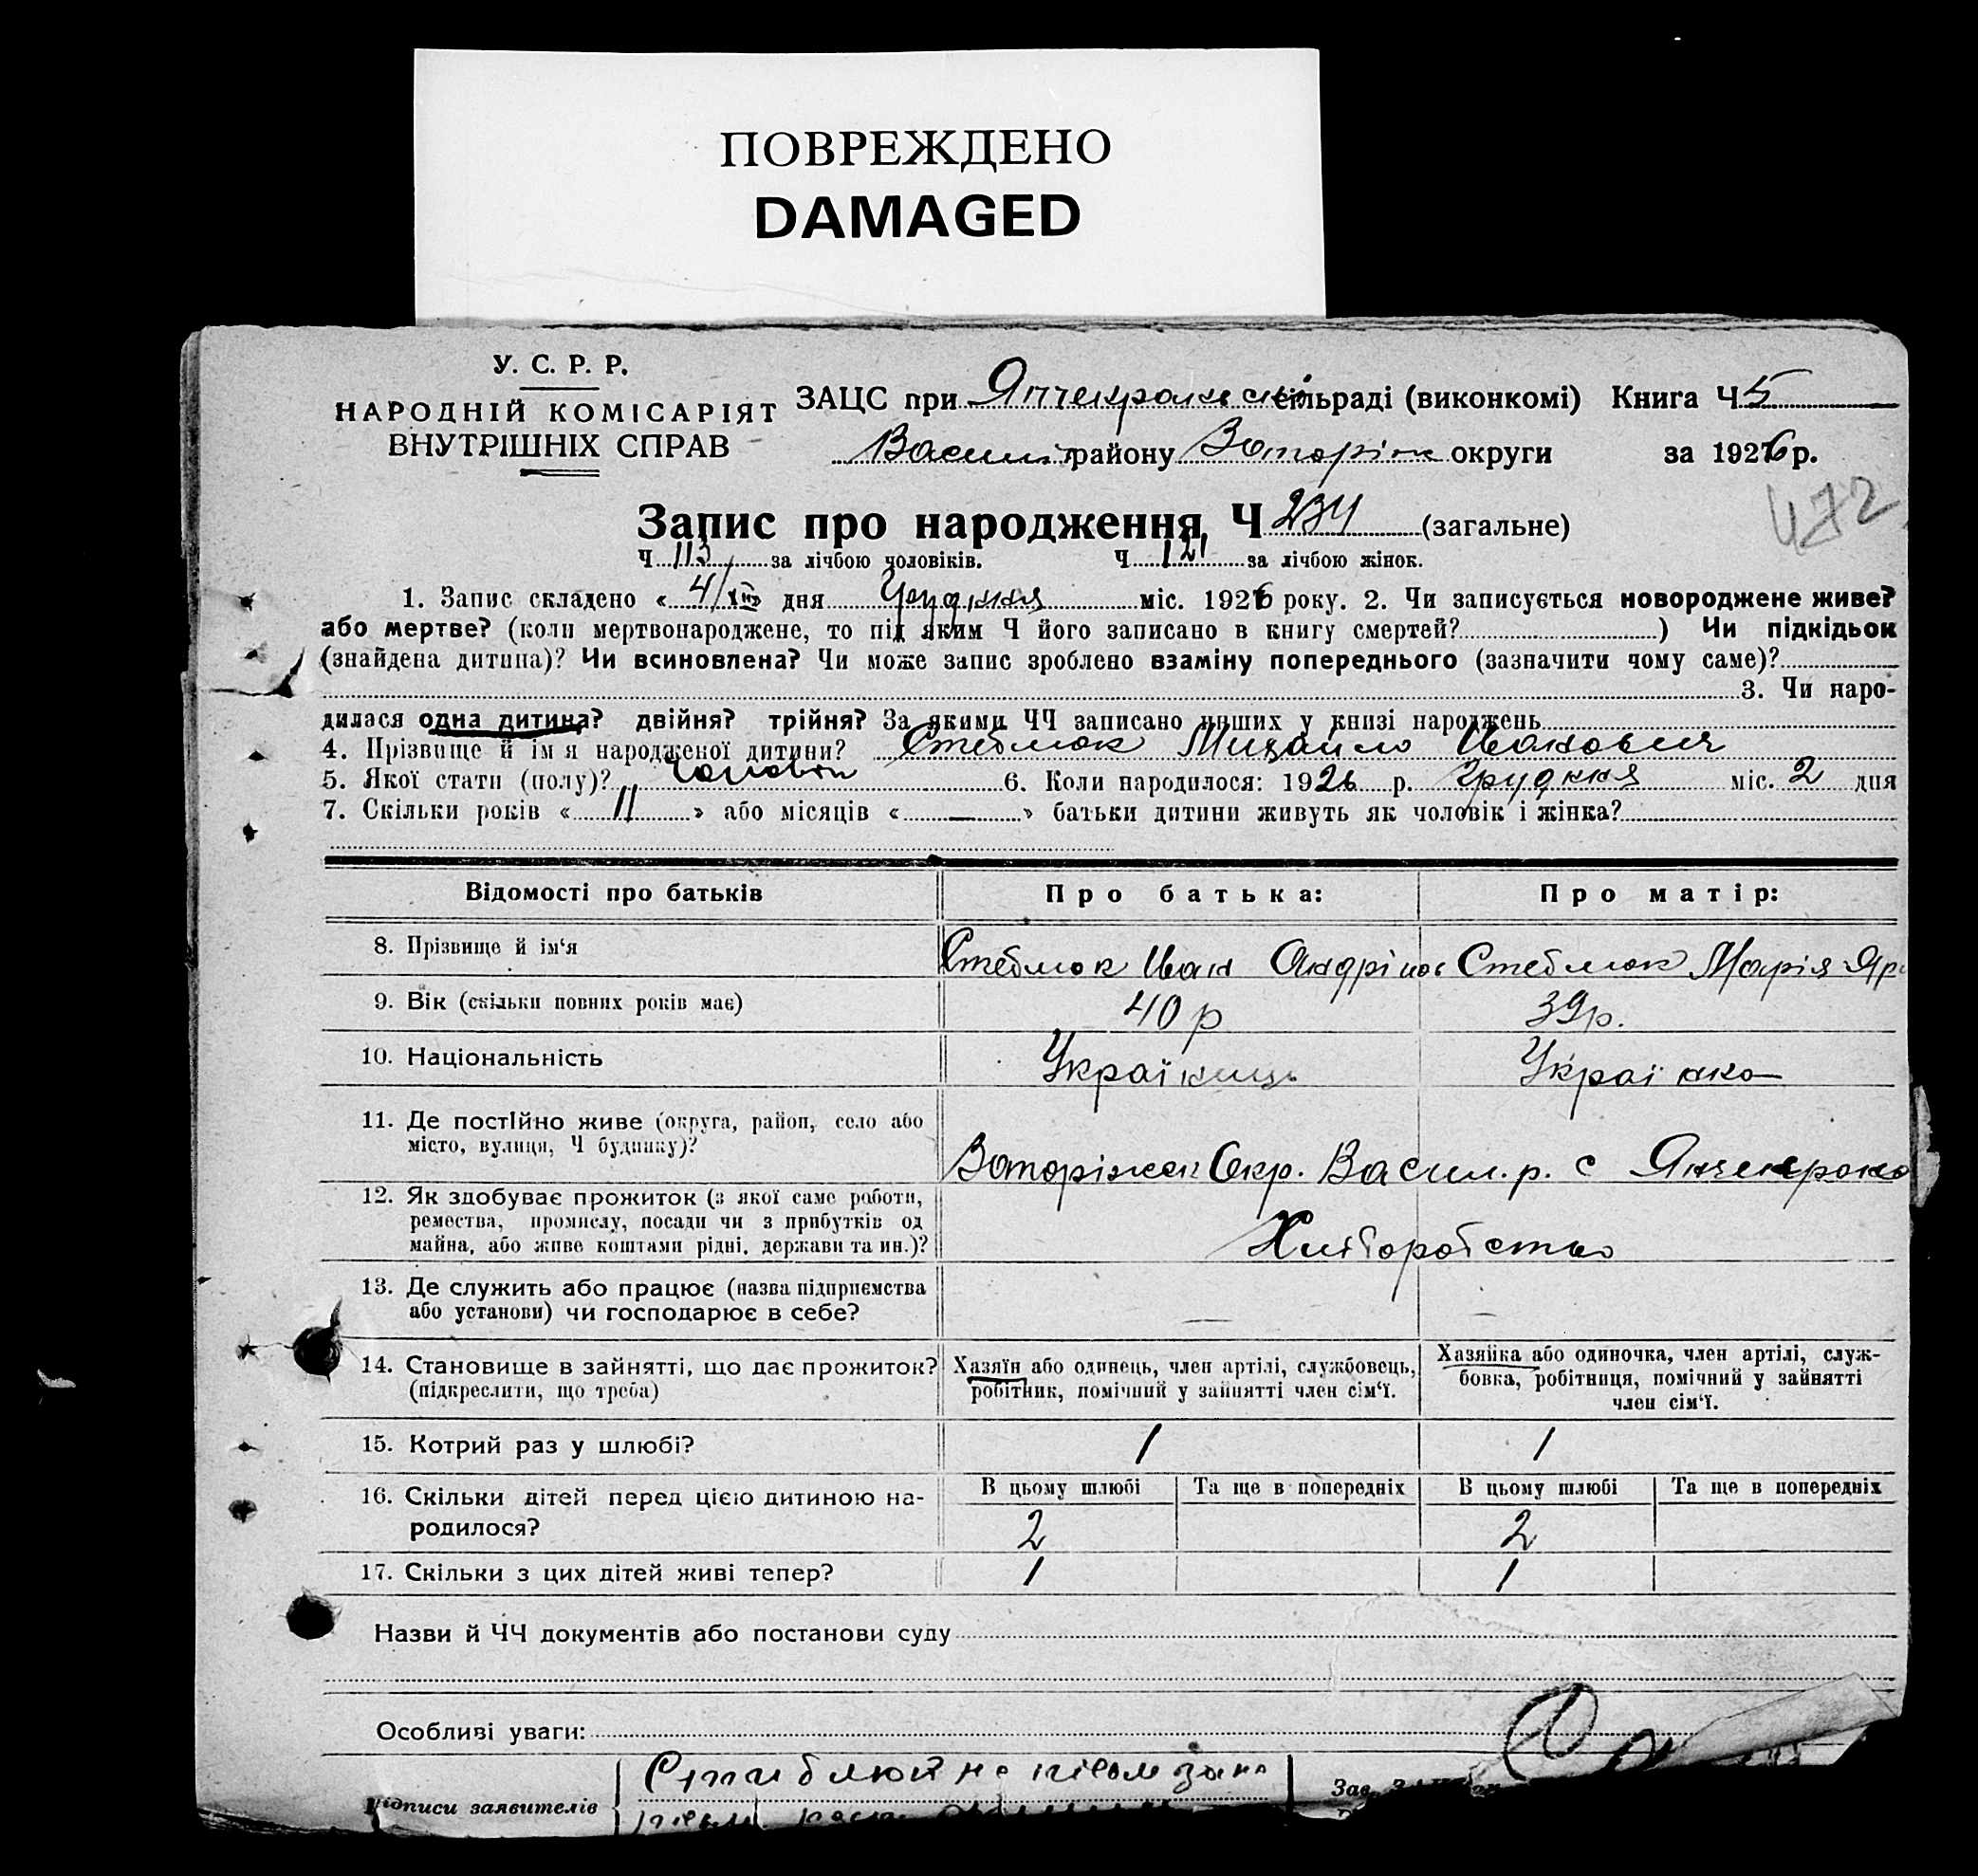 ПОВРЕЖДЕНО
DAMAGED
У. С. Р. Р.
НАРОДНІЙ КОМІСАРІЯТ
ВНУТРІШНІХ СПРАВ
ЗАЦС при Янчекракській сільраді (виконкомі) Книга Ч 5
Васил району Запоріж округи за 1926 р.
472
Запис про народження Ч 234 (загальне)
Ч 113 за лічбою чоловіків. Ч 121 за лічбою жінок.
1. Запис складено « 4/XII » дня Грудкня міс. 1926 року. 2. Чи записується новороджене живе?
або мертве? (коли мертвонароджене, то під яким Ч його записано в книгу смертей? ) Чи підкідьок
(знайдена дитина)? Чи всиновлена? Чи може запис зроблено взаміну попереднього (зазначити чому саме)?
3. Чи наро-
дилася одна дитина? двійня? трійня? За якими ЧЧ записано инших у книзі народжень
4. Прізвище й ім'я народженої дитини? Стеблюк Михайло Иванович
5. Якої стати (полу)? чоловік 6. Коли народилося: 1926 р. Грудкня міс. 2 дня
7. Скільки років « 11 » або місяців « — » батьки дитини живуть як чоловік і жінка?
Відомості про батьків Про батька: Про матір:
8. Прізвище й ім'я Стеблюк Иван Андрінов Стеблюк Марія Яр
9. Вік (скільки повних років має) 40 р 39 р.
10. Національність Українець Українка
11. Де постійно живе (округа, район, село або
місто, вулиця, Ч будинку)? Запоріжск Окр. Васил. р. с Янчекрака
12. Як здобуває прожиток (з якої саме работи,
ремества, промислу, посади чи з прибутків од
майна, або живе коштами рідні, держави та ин.)? Хліборобство
13. Де служить або працює (назва підприємства
або установи) чи господарює в себе? — —
14. Становище в зайнятті, що дає прожиток?
(підкреслити, що треба)
Хазяїн або одинець, член артілі, службовець,
робітник, помічний у зайнятті член сім'ї.
Хазяйка або одиночка, член артілі, служ-
бовка, робітниця, помічний у зайнятті
член сім'ї.
15. Котрий раз у шлюбі? 1 1
16. Скільки дітей перед цією дитиною на-
родилося?
В цьому шлюбі Та ще в попередніх В цьому шлюбі Та ще в попередніх
2 2
17. Скільки з цих дітей живі тепер? 1 1
Назви й ЧЧ документів або постанови суду
Особливі уваги:
Підписи заявителів
Зав.